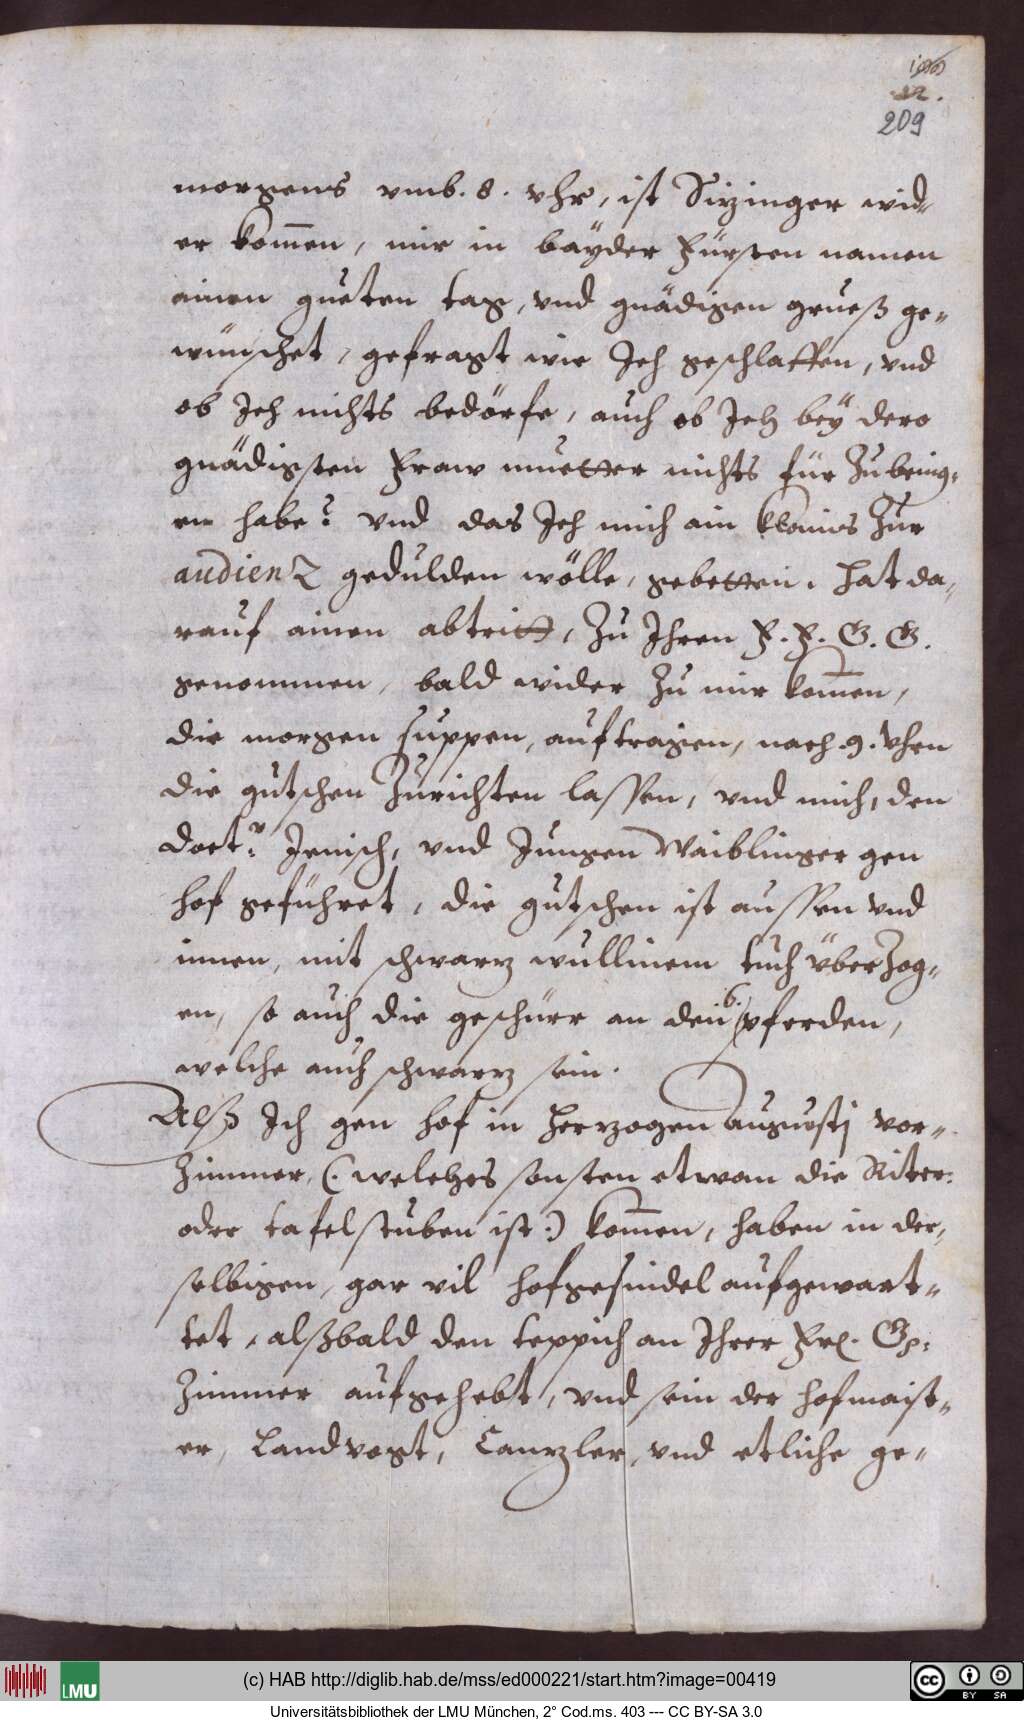 209
morgens vmb. 8. vhr, ist Sizinger wid-
er kom̄en, mir in bayder Fürsten namen
ainen gueten tag, vnd gnädigen grueß ge-
wünschet, gefragt wie Jch geschlaffen, vnd
ob Jch nichts bedörfe, auch ob Jch beÿ dero
gnädigsten Fraw muetter nichts für Zubring-
en habe? vnd das Jch mich ain klains Zur
audienz gedulden wölle, gebetten. Hat da-
rauf ainen abtritt, Zu Ihren F. F. G. G.
genommen, bald wider Zu mir kom̄en,
die morgen suppen, auftragen, nach .9. vhrn
die gutschen Zurichten lassen, vnd mich, den
doctr: Jenisch, vnd Jungen Waiblinger gen
hof geführet, die gutschen ist aussen vnd
innen, mit schwarz wullinem tuch überZog-
en, so auch die geschürr an den 6. pferden,
welche auch schwarz sein.
Alß Ich gen hof in Herzogen Augustj vor-
Zimmer, (: welches sonsten etwan die Riter:
oder tafelstuben ist :) kom̄en, haben in der-
selbigen, gar vil hofgesindel aufgewart-
tet, alßbald den teppich an Ihrer Frl. Gn:
Zimmer aufgehebt, vnd sein der hofmaist-
er, Landvogt, Canzler, vnd etliche ge-
LMU
(c) HAB http://diglib.hab.de/mss/ed000221/start.htm?image=00419
Universitätsbibliothek der LMU München, 2° Cod.ms. 403 --- CC BY-SA 3.0
cc BY SA